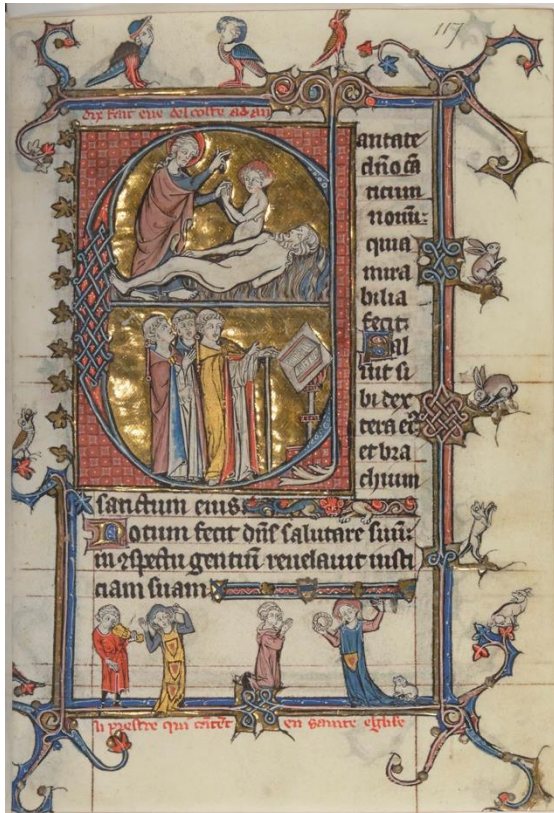 117
dix fait eue del coste adan
Cantate
dn̄o cā
ticum
nouū:
quia
mira
bilia
fecit:
Sal
uit si
bi dex
tera eiꝰ
et bra
chium
sanctum eius:
Notum fecit dn̄s salutare suū:
in ꝯspectu gentiū reuelauit iusti
ciam suam
li prestre qui cātēt en sainte eglise